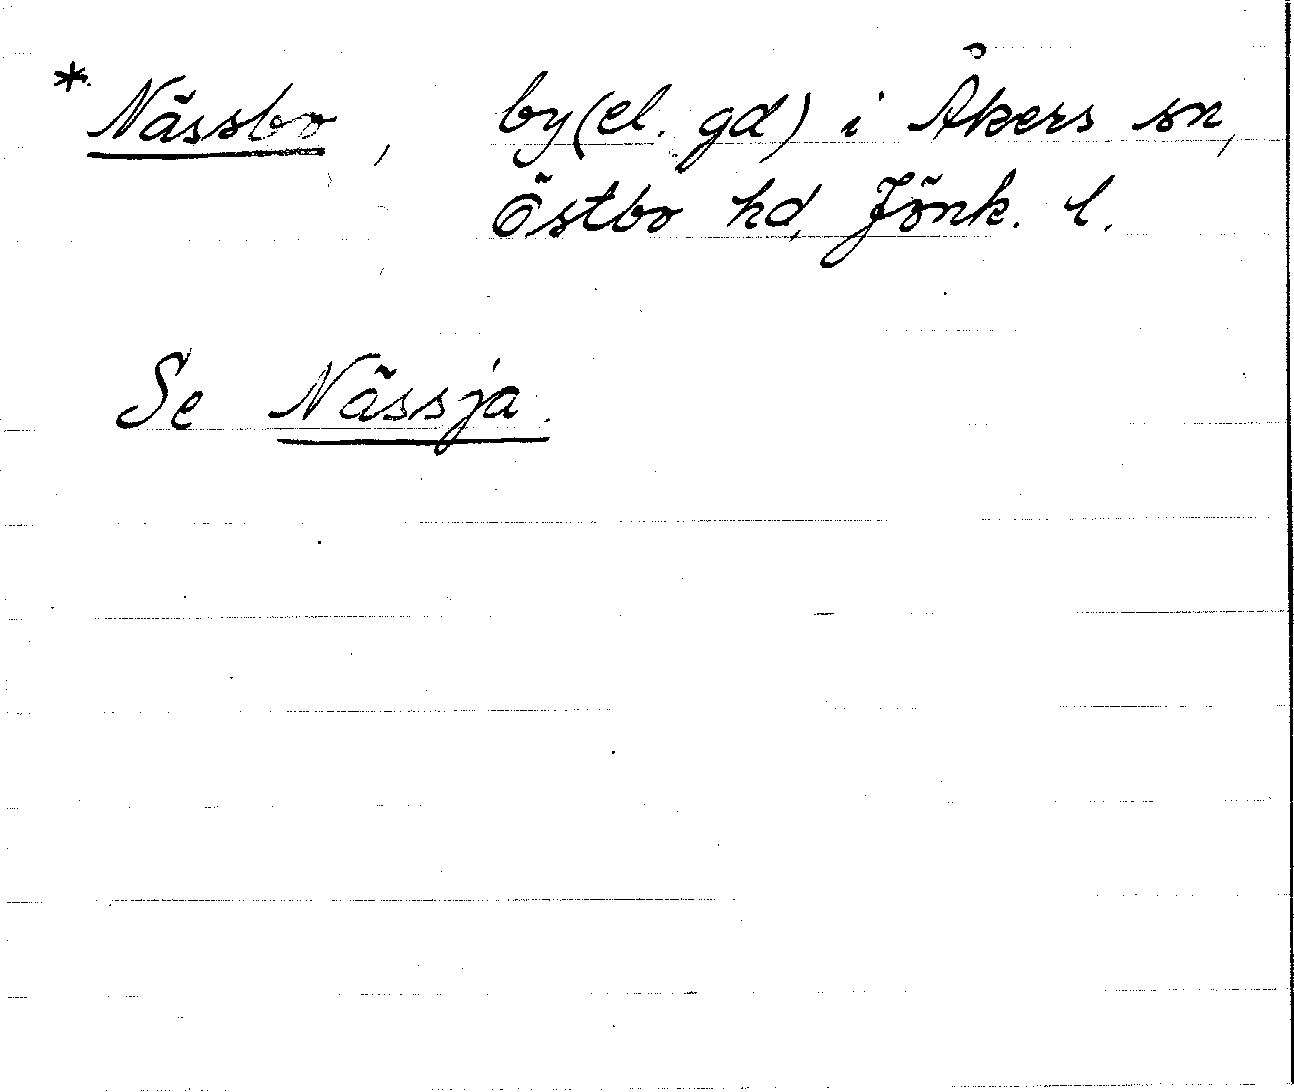 * Nässbo, by (el. gd) i Åkers sn,
Östbo hd, Jönk. l.
Se Nässja.